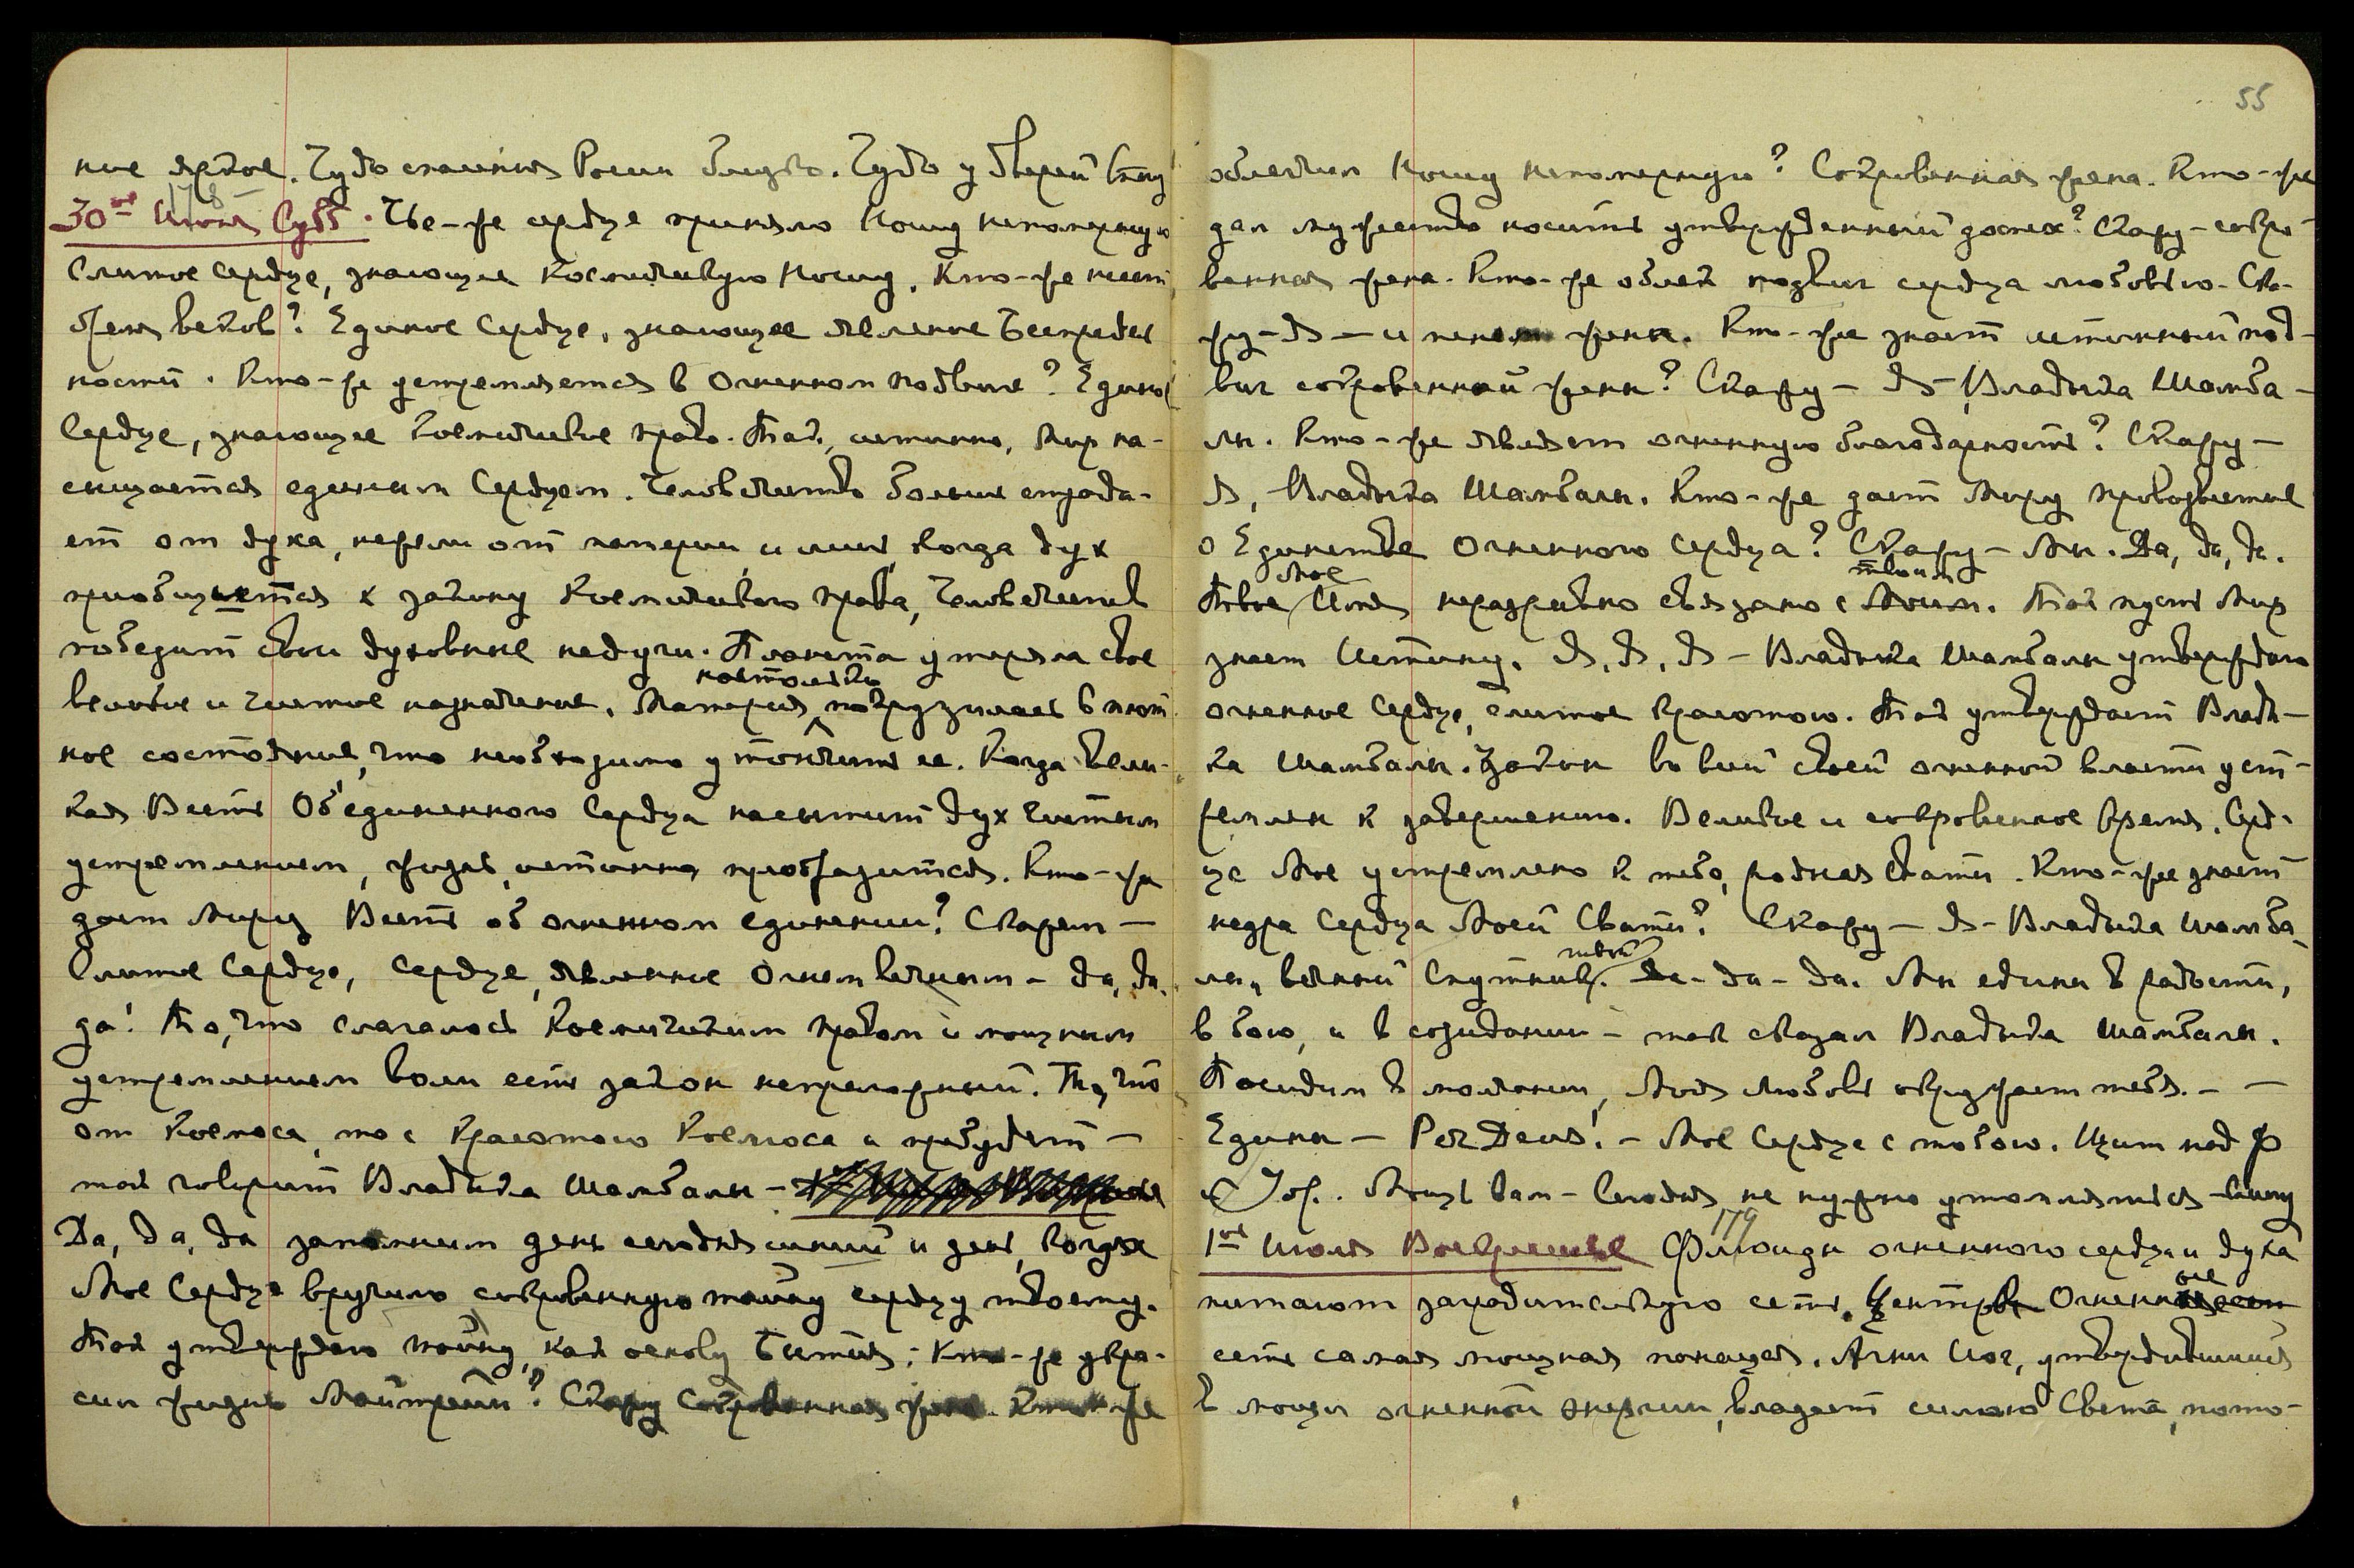 55
ние яркое. Чудо спасения России близко. Чудо у дверей
178
30ое Июня Субб. Чье-же сердце приняло Ношу непомерную
Слитое Сердце, знающее Космическую Ношу. Кто-же несет
бремя веков? Единое Сердце, знающее явление Беспредель
ности. Кто-же устремляется в Огненном подвиге? Единое
Сердце, знающее Космическое право. Так, истинно, Мир на-
сыщается единым Сердцем. Человечество больше страда-
ет от духа, нежели от материи, и лишь, когда дух
приобщится к закону Космического права, Человечество
победит свои духовные недуги. Планета утеряла свое
настолько
великое и чистое назначение. Материя погрузилась в плот
ное состояние, что необходимо утончить ее. Когда вели-
кая Весть Об'единенного Сердца насытит дух чистым
устремлением, жизнь, истинно, преобразится. Кто-же
дает Миру Весть об огненном единении? Скажем —
Слитое Сердце, Сердце, явленное Огнем вечным – да, да,
да! То, что слагалось Космическим правом и мощным
устремлением воли есть закон непреложный. То, что
от Космоса, то с Красотою Космоса и пребудет —
так говорит Владыка Шамбалы –
Да, да, да запомним день сегодняшний и день, когда
Мое Сердце вручило сокровенную тайну сердцу твоему.
Так утверждаю тайну, как основу Бытия; Кто-же укра-
сил жизнь Майтрейи? Скажу Сокровенная жена. Кто-же
облегчил Ношу непомерную? Сокровенная жена. Кто-же
дал мужество носить утвержденный доспех? Скажу – сокро-
венная жена. Кто-же облек подвиг сердца любовью. Ска-
жу – Я — и пением жены. Кто-же знает истинный под-
виг сокровенной жены? Скажу – Я – Владыка Шамба-
лы. Кто-же являет огненную благодарность? Скажу –
Я, – Владыка Шамбалы. Кто-же дает Миру провозвестие
о Единстве Огненного Сердца? Скажу – Мы. Да, да, да.
Мое твоим
Твое Имя неразрывно связано с Моим. Так пусть Мир
знает Истину. Я, Я, Я – Владыка Шамбалы утверждаю
огненное Сердце, слитое Красотою. Так утверждает Влады-
ка Шамбалы. Закон во всей своей огненной власти уст-
ремлен к завершению. Великое и сокровенное время. Серд-
це Мое устремлено к тебе, родная Свати. Кто-же знает
недра Сердца Моей Свати? Скажу – Я – Владыка Шамба-
твой
лы, вечный Спутник. Да – да – да. Мы едины в радости,
в бою, и в созидании – так сказал Владыка Шамбалы.
Посидим в молчании, Моя Любовь окружает тебя. – –
Едины — Per Deus! – Мое Сердце с тобою. Щит над Ф
и Юр. Мощь вам – Сегодня не нужно утомляться –
179
1ое Июля Воскресенье Флюиды огненного сердца и духа
ые
питают заградительную сеть. Центры Огненн
есть самая мощная помощь. Агни Йог, утвердившийся
в мощи огненной энергии, владеет силою Света, пото-